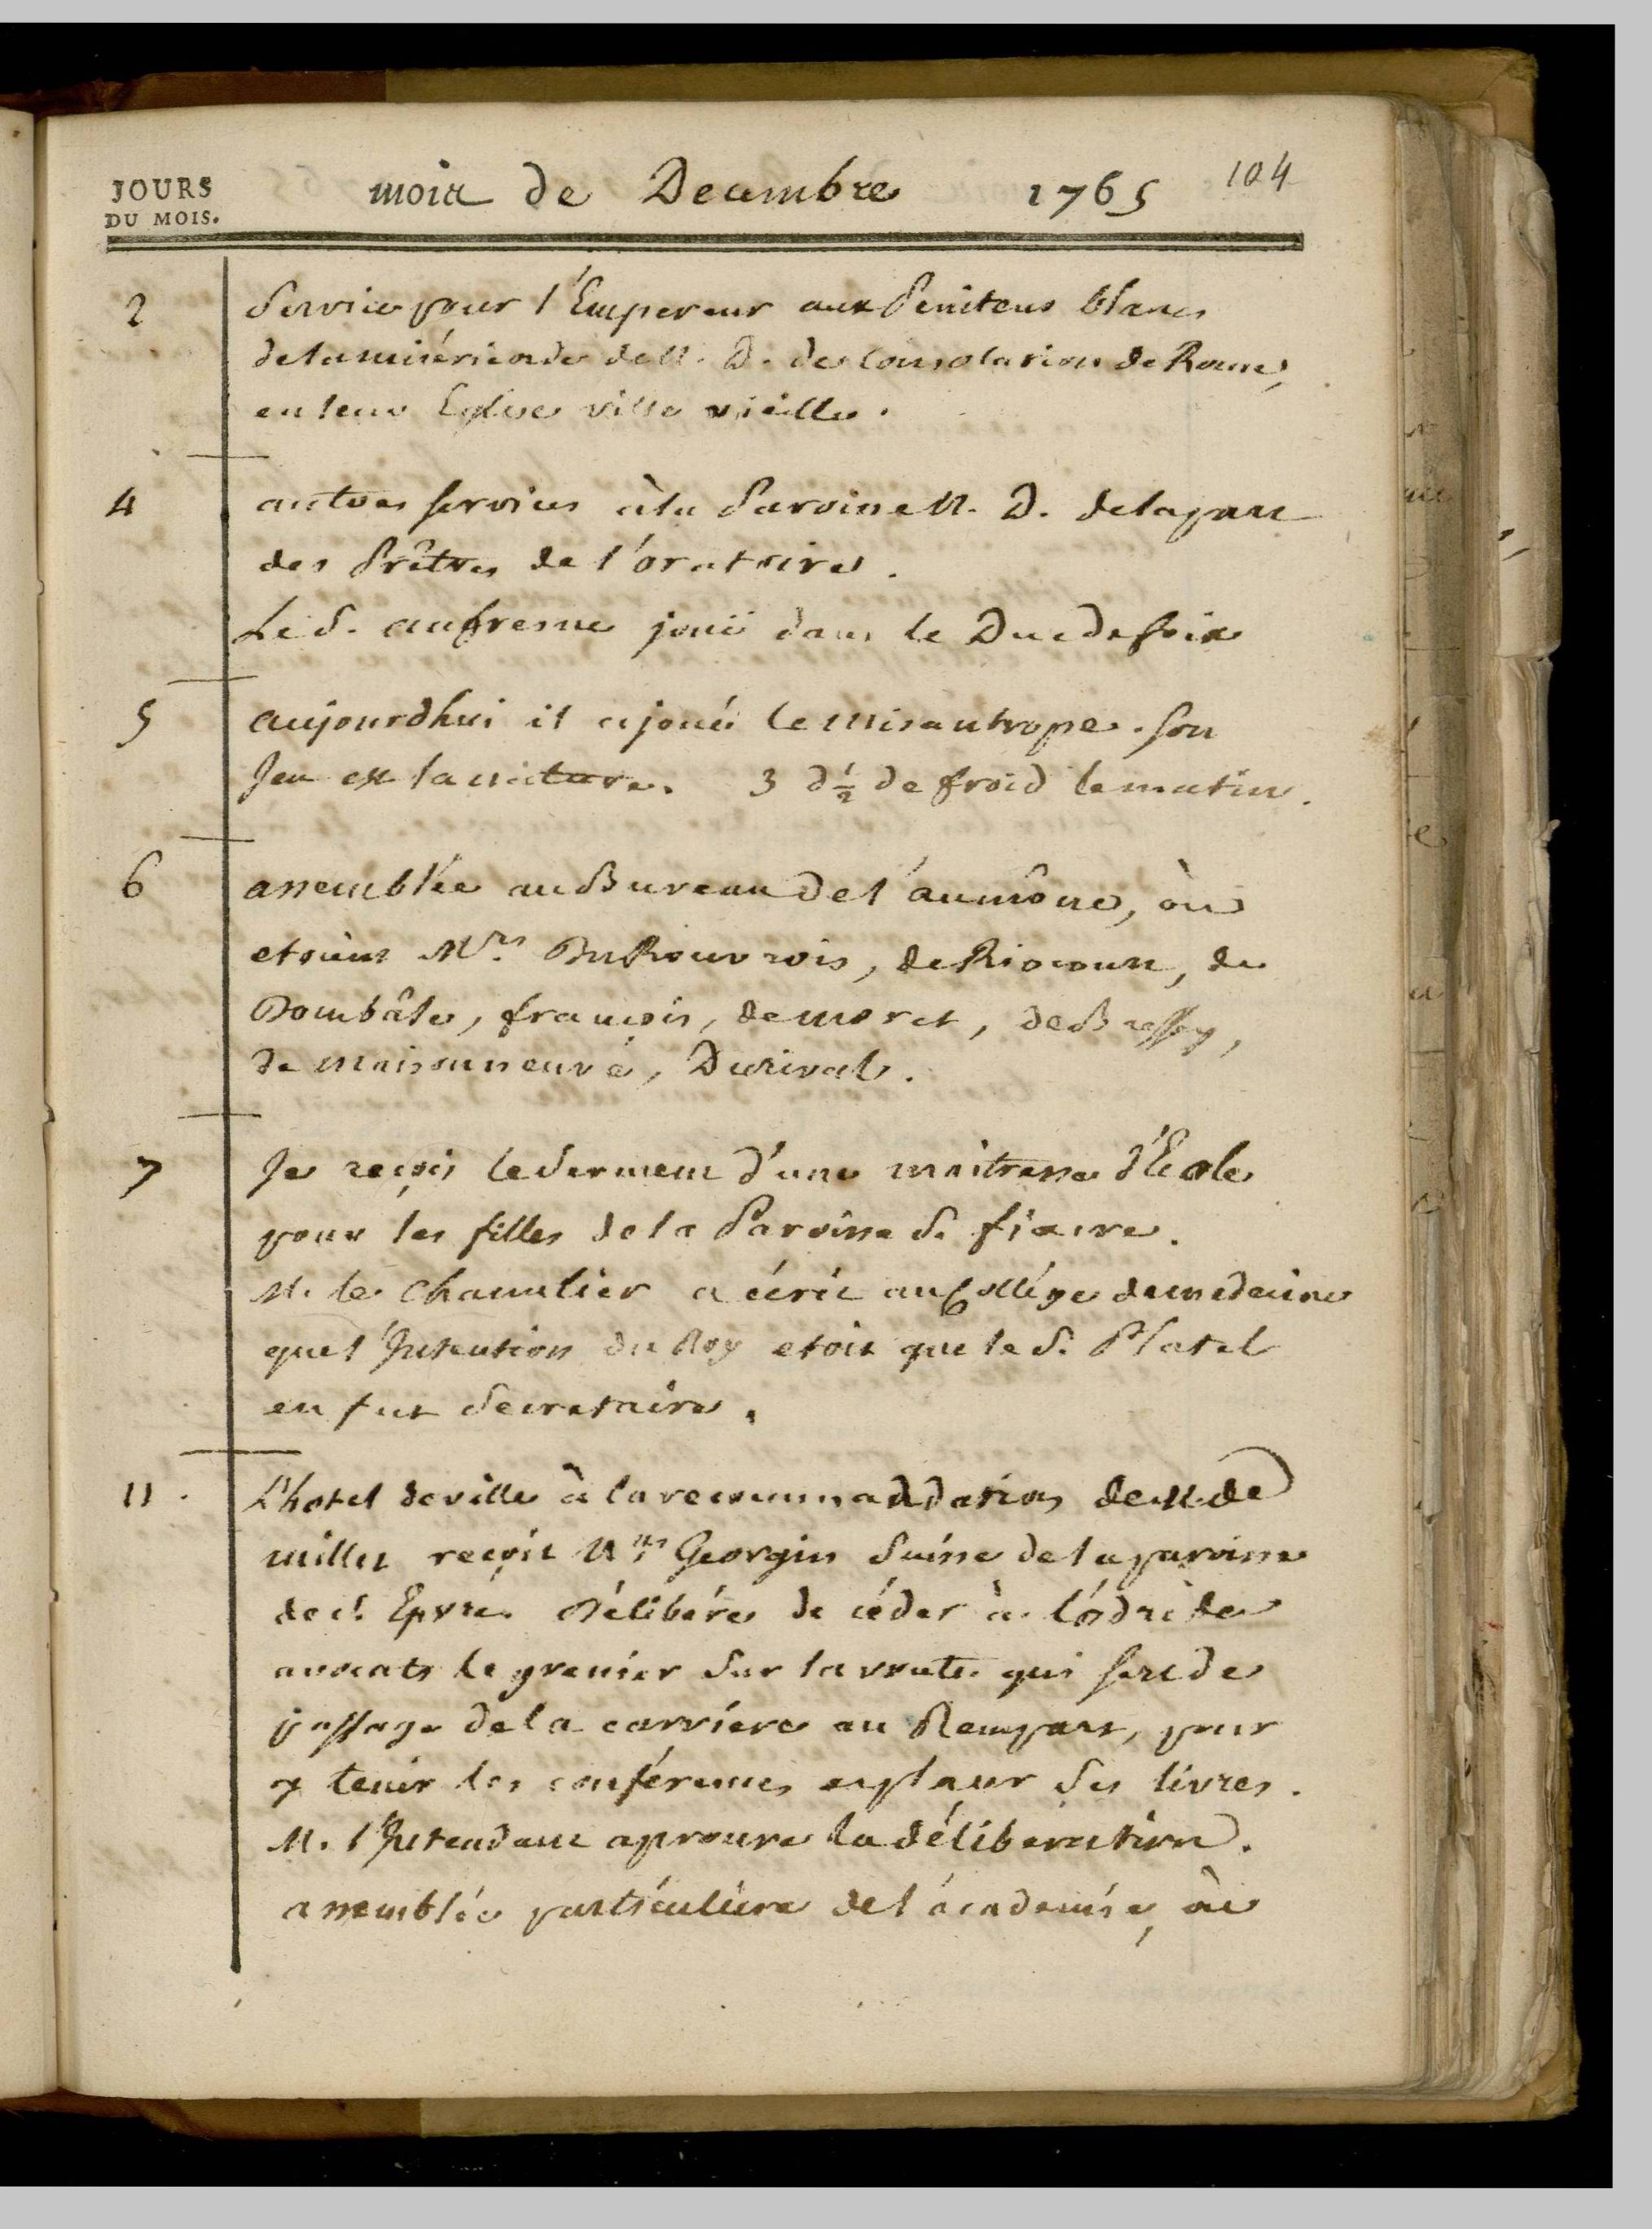 JOURS
DU MOIS.
mois de Decembre 1765 104
2 Service pour l'Empereur aux Penitens blancs
de la miséricorde de N. D. de Consolation de Rome,
en leur Eglise ville vieille.
4 autres services à la Paroisse N. D. de la part
des Prêtres de l'oratoire.
Le S. aufresne joüe dans le Duc de foix
5 aujourdhui il a joué le misantrope. son
Jeu est la nature. 3 d ½ de froid le matin.
6 assemblée au Bureau de l'aumône, où
etoient Mrs. DuRouvrois, de Riocourt, de
Dombâle, françois, de moret, de Bressey,
de maisonneuve, Durival.
7 Je reçois le serment d'une maitresse d'Ecole
pour les filles de la Paroisse S. fiacre.
M. le Chancelier a écrit au Collége de medecine
que l'Intention du Roy etoit que le S. Platel
en fut Secretaire.
11. L'hotel de ville à la recommandation de M. de
millet reçoit Georgin Suisse de la paroisse
de S. Epvre. Délibére de céder à l'ordre des
avocats le grenier sur la voute qui sert de
passage de la carriere au Rempart, pour
y tenir les conférences et placer ses livres.
M. l'Intendant aprouve la déliberation.
assemblée particuliere de l'académie, où